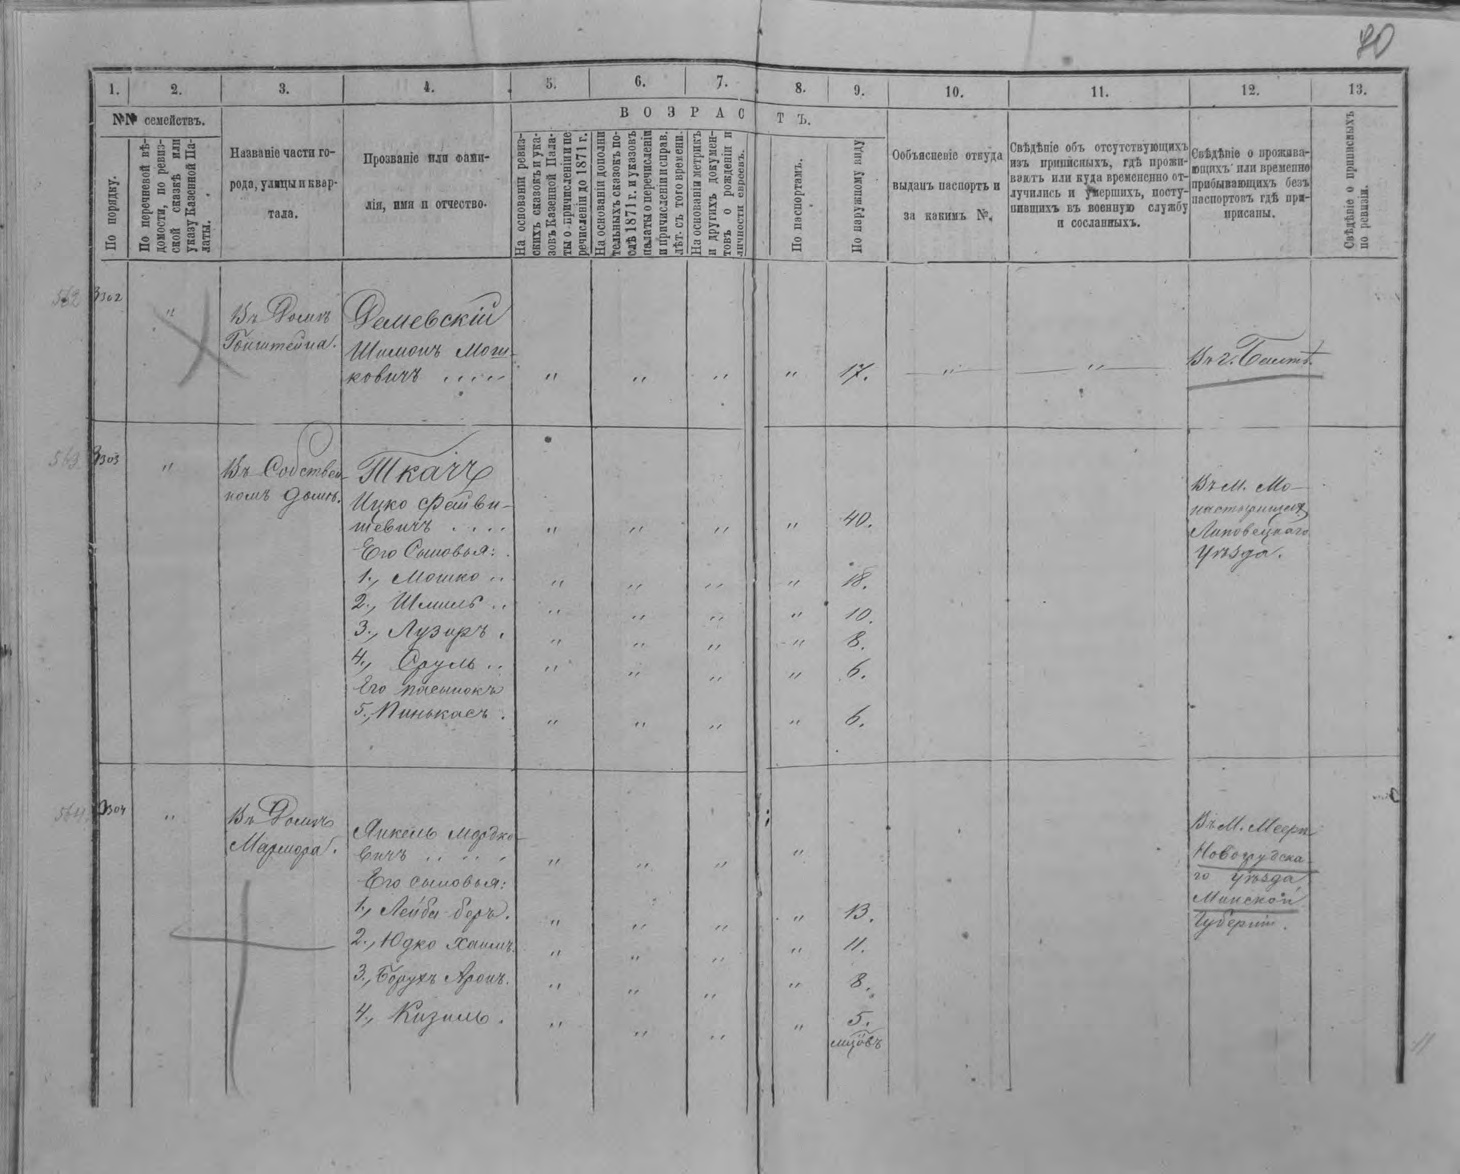 1. 2. 3. 4. 5. 6. 7. 8. 9. 10. 11. 12. 13.
№№ семействъ.
В О З Р А С Т Ъ.
По порядку.
По перечневой вѣ-
домости, по ревиз-
ской сказкѣ или
указу Казенной Па-
латы.
Названіе части го-
рода, улицы и квар-
тала.
Прозваніе или фами-
лія, имя и отчество.
На основаніи ревиз-
скихъ сказокъ и ука-
зовъ Казенной Пала-
ты о причисленіи и пе
речисленіи до 1871 г.
На основаніи дополни
тельныхъ сказокъ по-
слѣ 1871 г. и указовъ
палаты о перечисленіи
и причисленіи и справ.
лѣт. съ того времени.
На основаніи метрикъ
и другихъ докумен-
товъ о рожденіи и
личности евреевъ.
По паспортамъ.
По наружному виду
Ообъясненіе откуда
выданъ паспортъ и
за какимъ №.
Свѣдѣніе объ отсутствующихъ
изъ приписныхъ, гдѣ прожи-
ваютъ или куда временсно от-
лучились и умершихъ, посту-
пившихъ въ военную службу
и сосланныхъ.
Свѣдѣніе о прожива-
ющихъ или временно
прибывающихъ безъ
паспортовъ гдѣ при-
приписаны.
Свѣдѣніе о приписныхъ
по ревизіи.
562 3302 " Въ Домѣ
Гонштейна.
Демевскій
Шимонъ Мош-
ковичъ " " " " 17. " " Въ г. Балтѣ.
563 3303 " Въ Собствен-
номъ домѣ.
Ткачъ
Ицко Фейви-
шевичъ " " " " 40.
Въ М. Мо-
настырищѣ
Липовецкаго
Уѣзда.
Его Сыновья:
1., Мошко " " " " 18.
2., Шмиль " " " " 10.
3., Лузоръ " " " " 8.
4., Сруль " " " " 6.
Его пасынокъ
5., Пинькасъ " " " " 6.
564 3304 " Въ Домѣ
Мармора.
Янкель Мордко-
вичъ " " " "
Въ М.
Новогрудска-
го Уѣзда
Минской
Губерніи.
Его сыновья:
1., Лейба Беръ. " " " " 13.
2., Юдко Хаимъ. " " " " 11.
3., Борухъ Аронъ. " " " " 8.
4., Кизиль. " " " " 5.